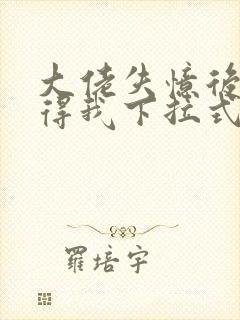 大佬失憶後
得我下拉式
羅培宇